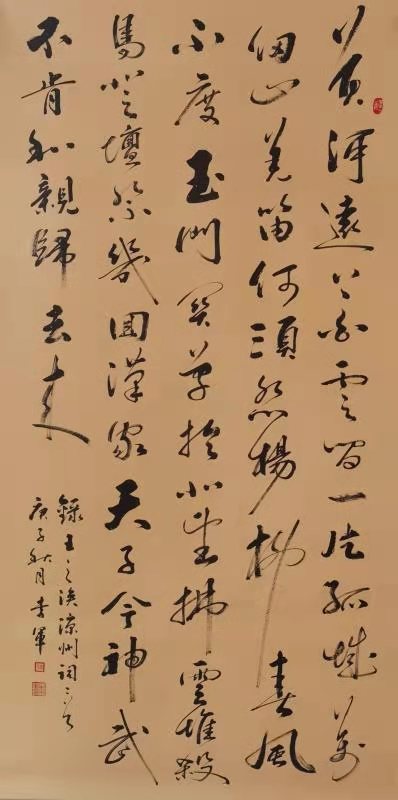 黄河遠上白雲間一片孤城萬
仞山羌笛何須怨楊柳春風
不度玉門關單於北望拂雲堆殺
馬登壇祭幾回漢家天子今神武
不肯和親歸去來
錄王之渙涼州詞二首
庚子秋月李軍